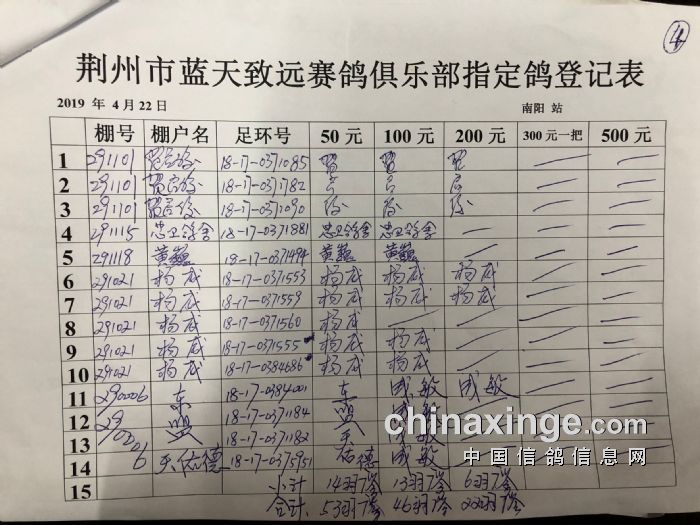 4
荆州市蓝天致远赛鸽俱乐部指定鸽登记表
2019 年 4 月 22 日 南阳 站
棚号 棚户名 足环号 50 元 100 元 200 元 300 元一把 500 元
1 291101 18-17-0371085
2 291101 18-17-0371782
3 291101 18-17-0371090
4 291115 忠卫鸽舍 18-17-0371881 忠卫鸽舍 忠卫鸽舍 —
5 291118 黄巍 18-17-0371494 黄巍 黄巍
6 291021 杨威 18-17-0371553 杨威 杨威 杨威
7 291021 杨威 18-17-0371559 杨威 杨威 杨威
8 291021 杨威 18-17-0371560 杨威
9 291021 杨威 18-17-0371555 杨威 杨威
10 291021 杨威 18-17-0384686 杨威 杨威
11 290006 东 18-17-0384001 东 成敏 成敏
12 盟 18-17-0371184 盟 成敏
13 18-17-0371182
14 天佑德 18-17-0375951 佑德 成敏
15 小计 14羽7答 13羽7答 6羽7答
合计 53羽7答 46羽7答 22羽7答
chinaxinge.com
中国信鸽信息网